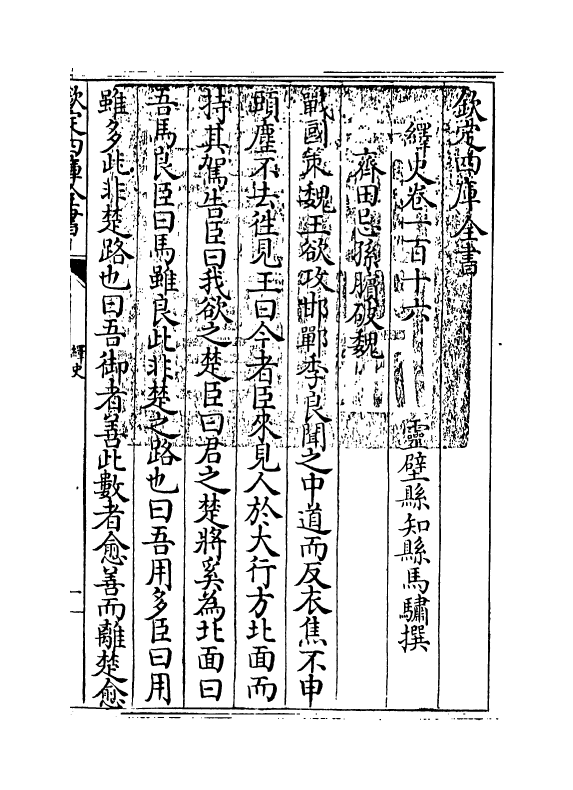 欽定四庫全書
繹史卷一百十六 靈壁縣知縣馬驌撰
齊田忌孫臏破魏
戰國策魏王欲攻邯鄲季良聞之中道而反衣焦不申
頭塵不去徃見王曰今者臣來見人於大行方北面而
持其駕告臣曰我欲之楚臣曰君之楚將奚為北面曰
吾馬良臣曰馬雖良此非楚之路也曰吾用多臣曰用
雖多此非楚路也曰吾御者善此數者愈善而離楚愈
欽定四庫全書
繹史
一